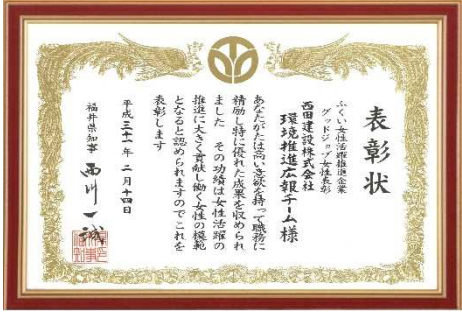 表彰状
ふくい女性活躍推進企業
グッドジョブ女性表彰
西田建設株式会社
環境推進広報チーム様
あなたがたは高い意欲を持って職務に
精励し特に優れた成果を収められ
ました その功績は女性活躍の
推進に大きく貢献し働く女性の模範
となると認められますのでこれを
表彰します
平成三十一年二月十四日
福井県知事 西川一誠